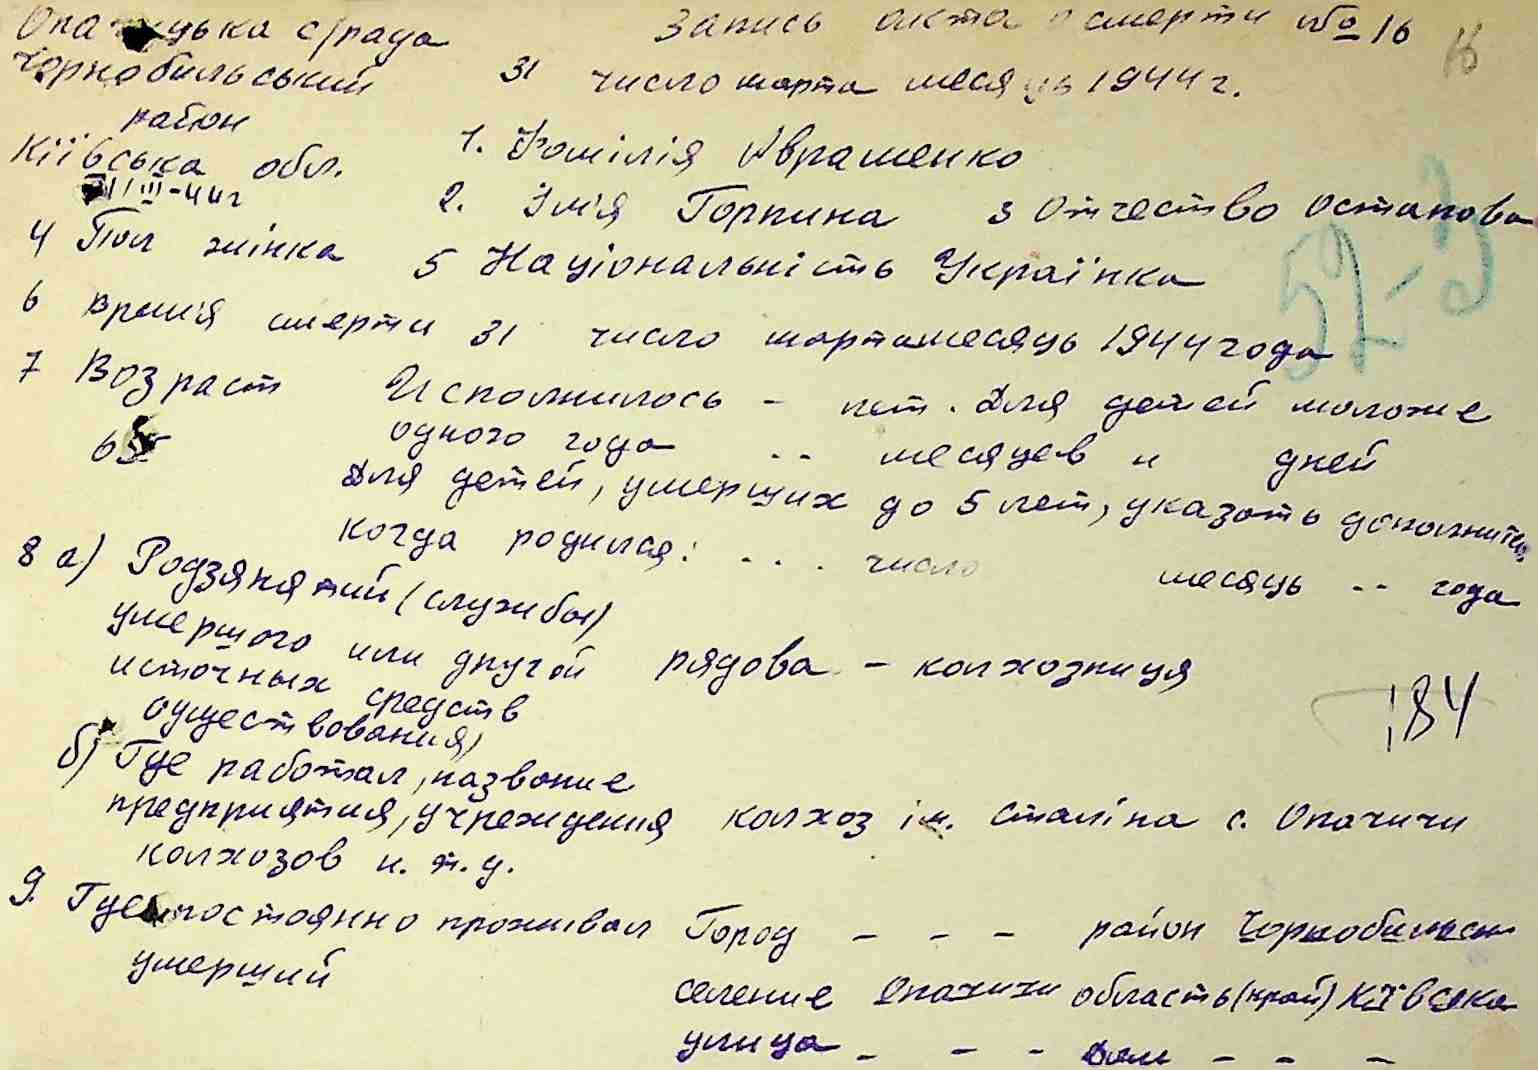 Опачицька с/рада Запись акта о смерти № 16 16
Чорнобильський 31 число марта месяць 1944 г.
район
Київська обл. 1. Фамілія Аврашенко
31/III-44г 2. Ім'я Горпина 3 Отчество Остапова
4 Пол жінка 5 Національність Українка
52-3
6 Врем'я смерти 31 число марта месяць 1944 года
7 Возраст Исполнилось - лет. Для детей моложе
65 одного года .. месяцев и дней
Для детей, умерших до 5 лет, указать дополнител.
когда родился: ... число месяць -- года
8 а) Родзянятий (службы)
умершого или другой рядова - колхозниця
источных средств
существования)
184
б) Где работал, название
предприятия, учреждения колхоз ім. Сталіна с. Опачичи
колхозов и. т. д.
9. Где постоянно проживал Город - - - район Чорнобильськ
умерший
селение Опачичи область (край) Київська
улица - - - Дом - - -